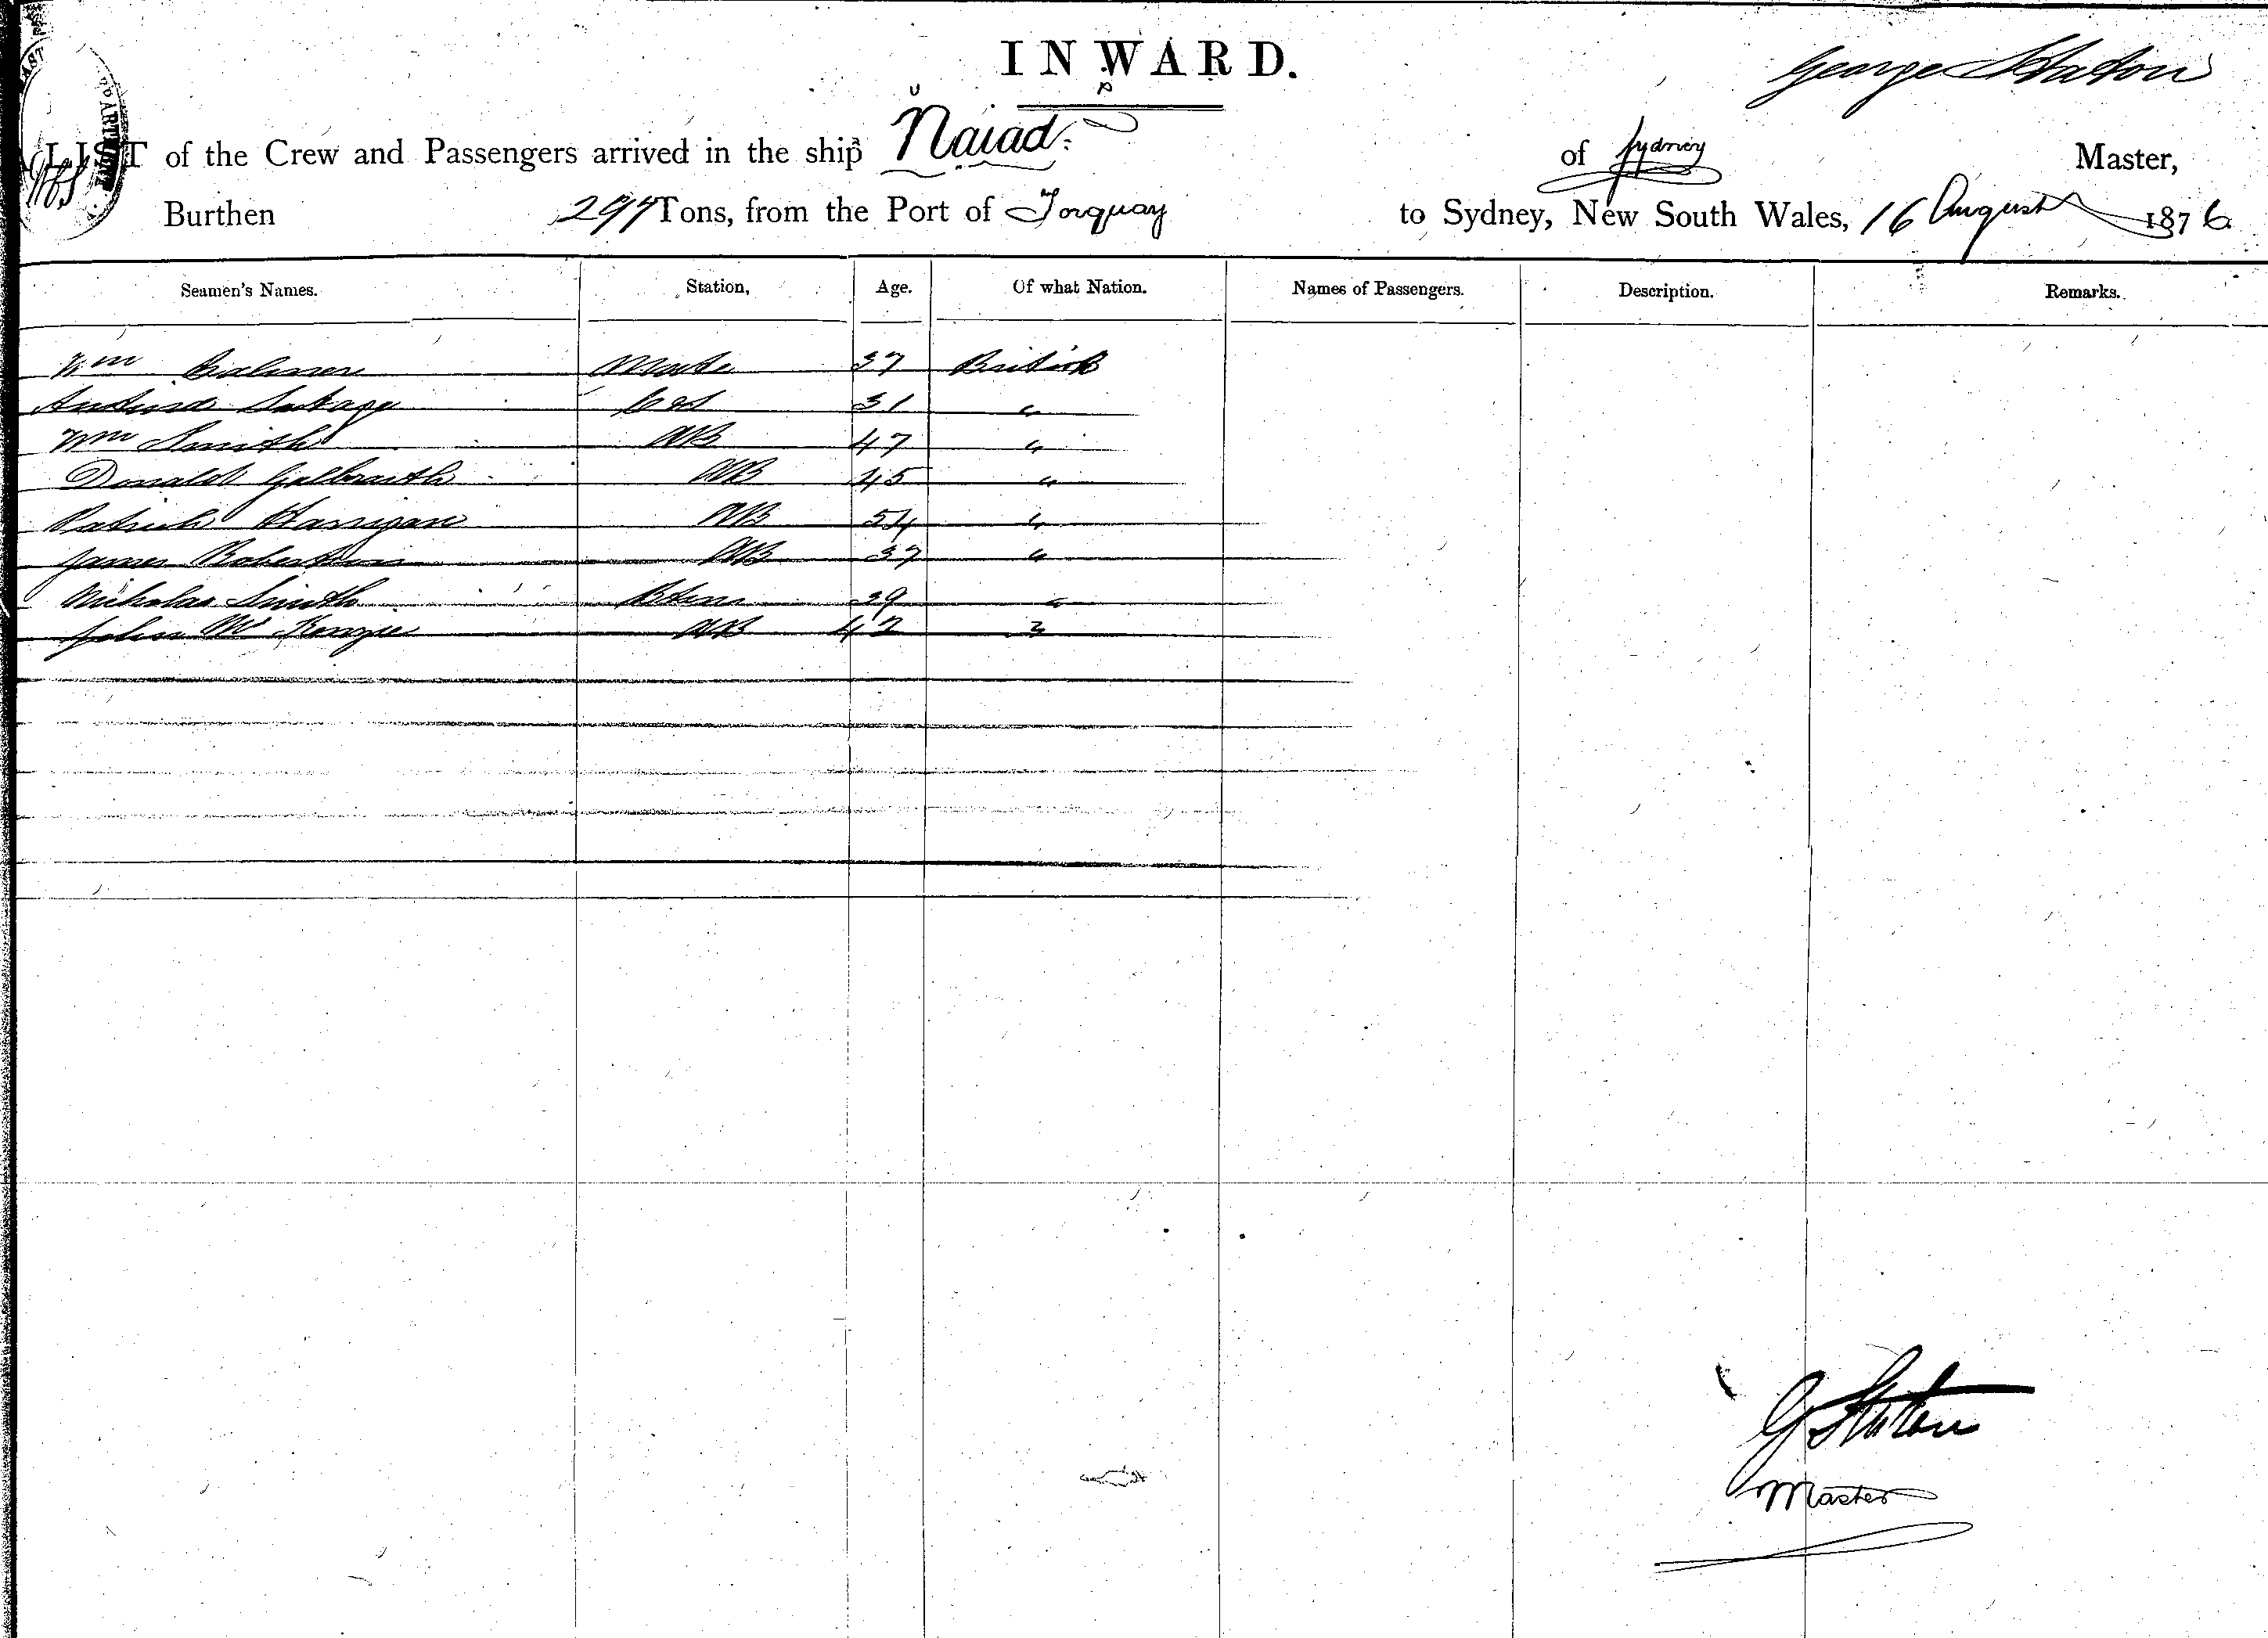 INWARD.
George Staton
LIST of the Crew and Passengers arrived in the ship Naiad of Sydney Master,
Burthen 297 Tons, from the Port of Torquay to Sydney, New South Wales, 16 August 1876
Seamen's Names. Station, Age. Of what Nation. Names of Passengers. Description. Remarks.
Wm Mate 37 British
31 "
Wm Smith AB 47 "
Donald Galbraith AB 45 "
Patrick Harrigan AB 54 "
James Robertson AB 37 "
Nicholas Smith 39 "
John McKenzie AB 42 "
G Staton
Master